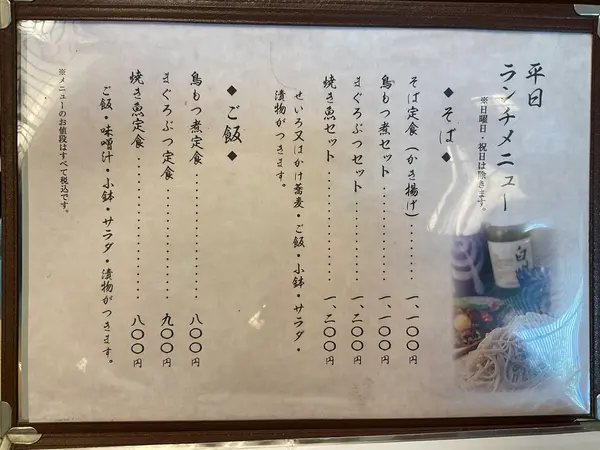 平日
ランチメニュー
※日曜日・祝日は除きます。
◆そば◆
そば定食(かき揚げ)........一、一〇〇円
鳥もつ煮セット............一、一〇〇円
まぐろぶつセット..........一、二〇〇円
焼き魚セット..............一、二〇〇円
せいろ又はかけ蕎麦・ご飯・小鉢・サラダ・
漬物がつきます。
◆ご飯◆
鳥もつ煮定食................八〇〇円
まぐろぶつ定食..............九〇〇円
焼き魚定食..................八〇〇円
ご飯・味噌汁・小鉢・サラダ・漬物がつきます。
※メニューのお値段はすべて税込です。